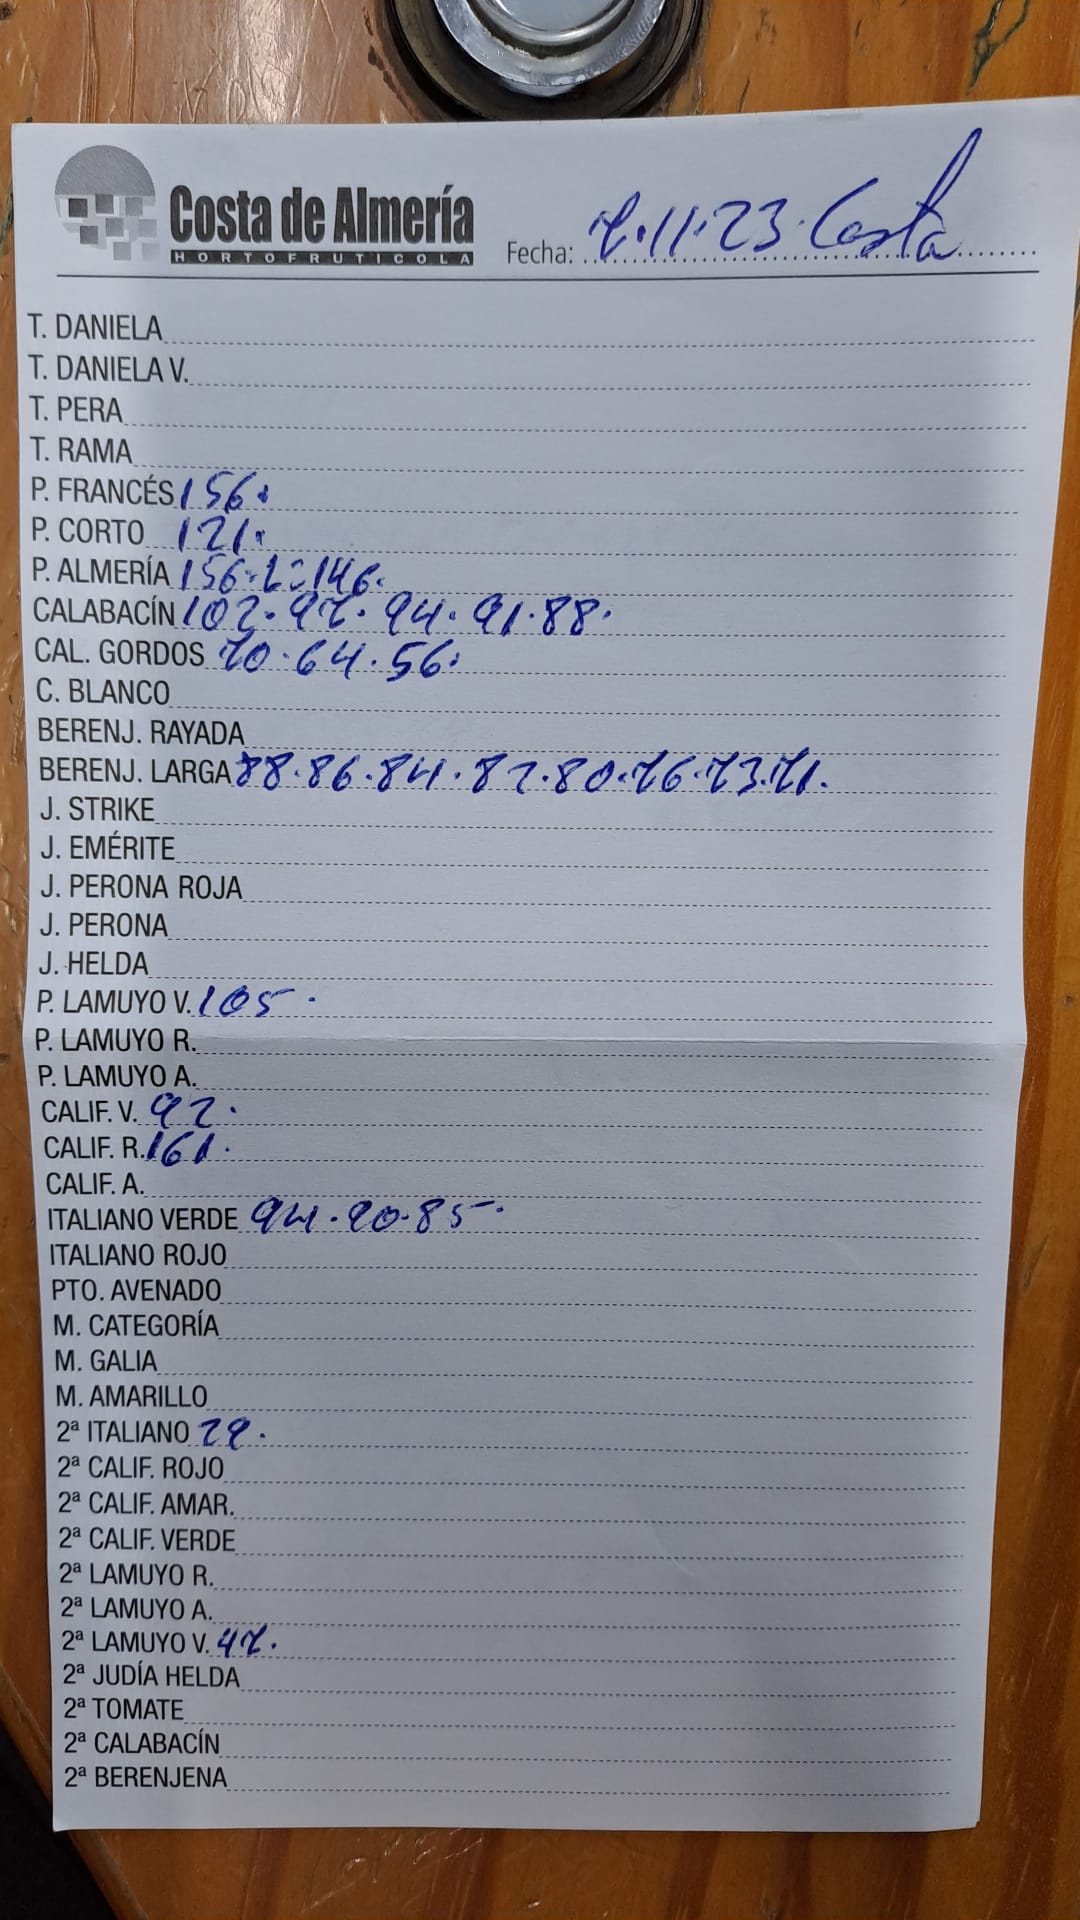 Costa de Almería
HORTOFRUTICOLA
Fecha: 7.11.23. Costa
T. DANIELA
T. DANIELA V.
T. PERA
T. RAMA
P. FRANCÉS 156.
P. CORTO 121.
P. ALMERÍA 156.L=146.
CALABACÍN 102. 97. 94. 91. 88.
CAL. GORDOS 70. 64. 56.
C. BLANCO
BERENJ. RAYADA
BERENJ. LARGA 88. 86. 84. 82. 80. 76. 73. 71.
J. STRIKE
J. EMÉRITE
J. PERONA ROJA
J. PERONA
J. HELDA
P. LAMUYO V. 105.
P. LAMUYO R.
P. LAMUYO A.
CALIF. V. 92.
CALIF. R. 161.
CALIF. A.
ITALIANO VERDE 94. 90. 85.
ITALIANO ROJO
PTO. AVENADO
M. CATEGORÍA
M. GALIA
M. AMARILLO
2ª ITALIANO 29.
2ª CALIF. ROJO
2ª CALIF. AMAR.
2ª CALIF. VERDE
2ª LAMUYO R.
2ª LAMUYO A.
2ª LAMUYO V. 47.
2ª JUDÍA HELDA
2ª TOMATE
2ª CALABACÍN
2ª BERENJENA